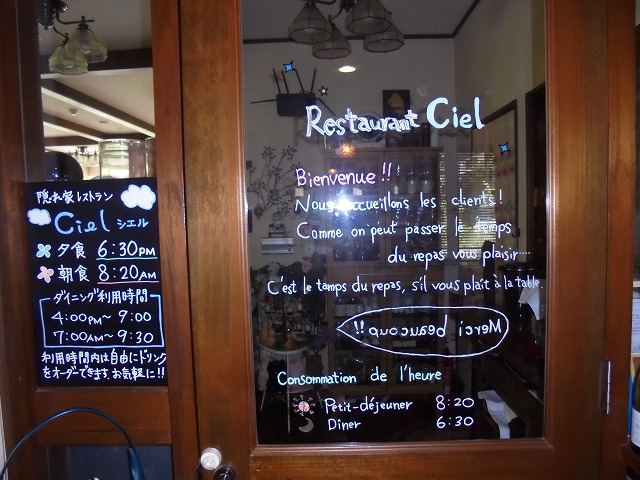 隠れ家レストラン
Ciel シエル
夕食 6:30PM
朝食 8:20AM
ダイニング利用時間
4:00PM～9:00
7:00AM～9:30
利用時間内は自由にドリンク
をオーダできます。お気軽に!!
Restaurant Ciel
Bienvenue!!
Nous accueillons les clients!
Comme on peut passer le temps
du repas vous plaisir....
C'est le tamps du repas, s'il vous plaît à la table.
Merci beaucoup!!
Consommation de l'heure
Petit-déjeuner 8:20
Diner 6:30